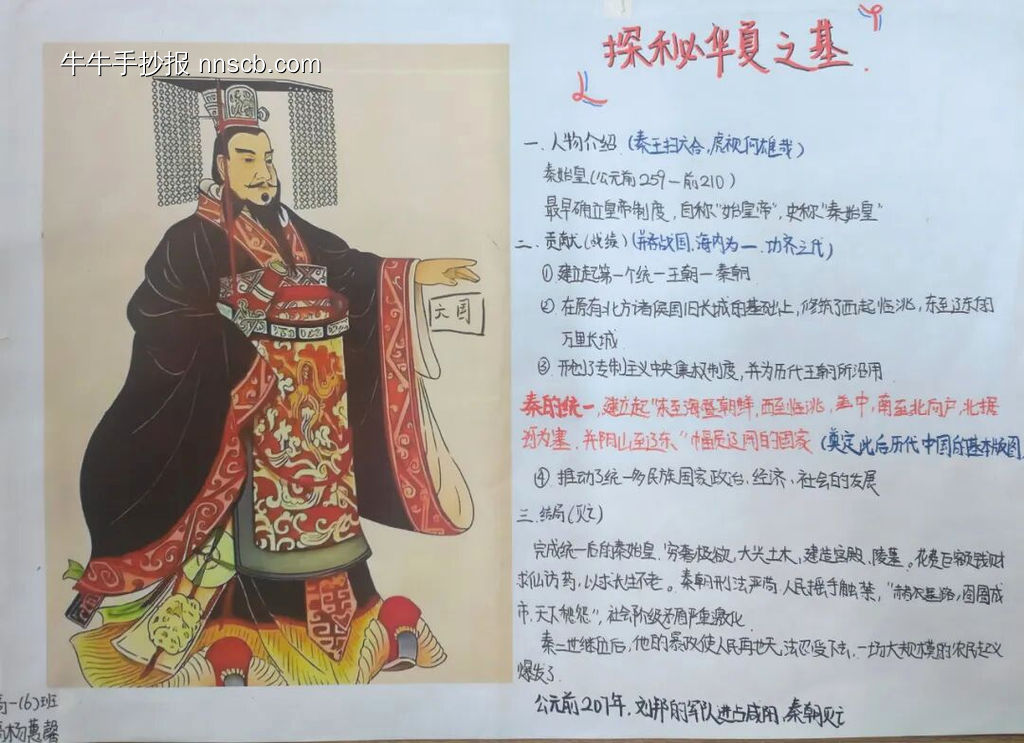 牛牛手抄报 nnscb.com
探秘华夏之基
一. 人物介绍 (秦王扫六合,虎视何雄哉)
秦始皇(公元前259—前210)
最早确立皇帝制度, 自称"始皇帝", 史称"秦始皇"
二. 贡献(成绩)(并吞战国,海内为一.功齐三代)
①建立起第一个统一王朝—秦朝
②在原有北方诸侯国旧长城的基础上,修筑了西起临洮,东至辽东的
万里长城.
③开创了专制主义中央集权制度,并为历代王朝所沿用
秦的统一,建立起"东至海暨朝鲜,西至临洮,羌中,南至北向户,北据
河为塞.并阴山至辽东"幅员辽阔的国家 (奠定此后历代中国的基本版图
④推动了统一多民族国家政治、经济、社会的发展
三.结局(灭亡)
完成统一后的秦始皇.穷奢极欲,大兴土木,建造宫殿、陵墓。花费巨额钱财
求仙访药,以求长生不老。秦朝刑法严苛,人民摇手触禁,"赭衣塞路,囹圄成
市,天下愁怨",社会阶级矛盾严重激化
秦二世继位后,他的暴政使人民再也无法忍受下去,一场大规模的农民起义
爆发了.
公元前207年.刘邦的军队进占咸阳,秦朝灭亡
六国
高一(6)班
杨蕙馨